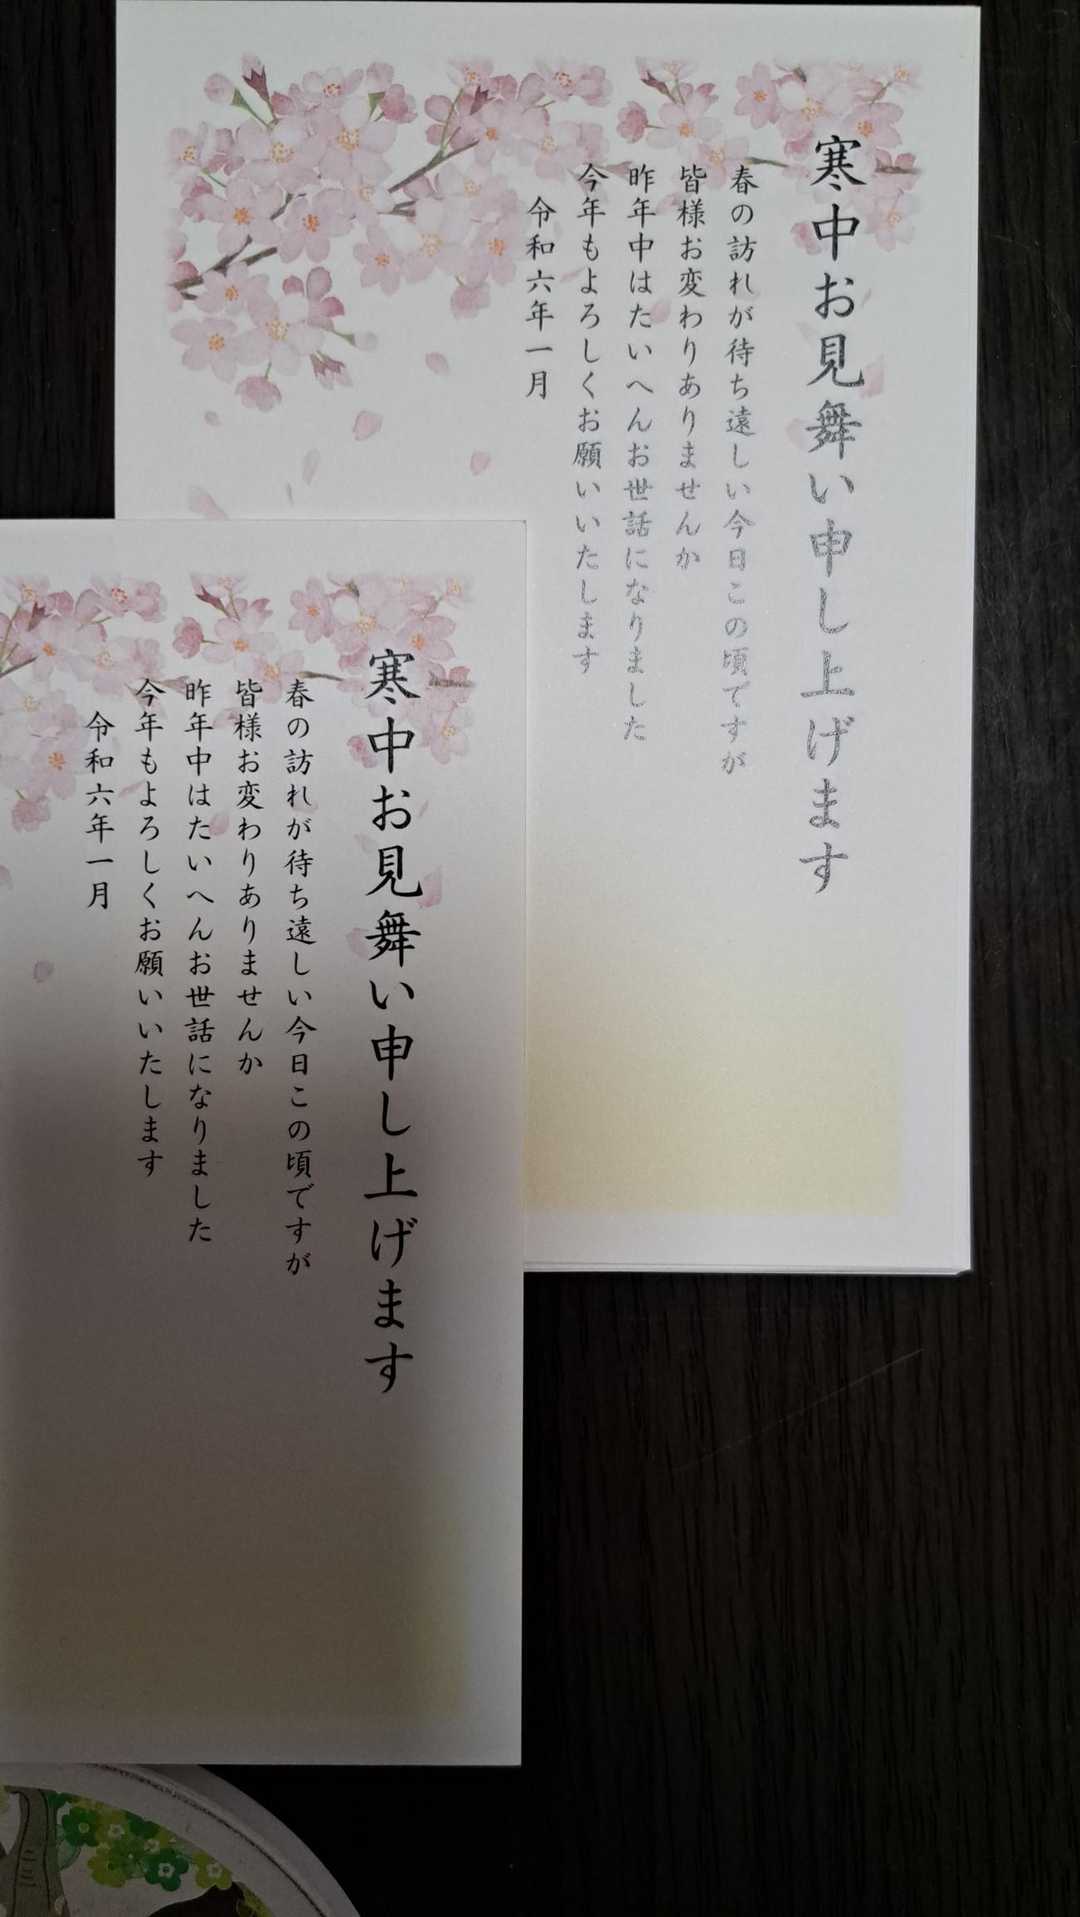 寒中お見舞い申し上げます
春の訪れが待ち遠しい今日この頃ですが
皆様お変わりありませんか
昨年中はたいへんお世話になりました
今年もよろしくお願いいたします
令和六年一月
寒中お見舞い申し上げます
春の訪れが待ち遠しい今日この頃ですが
皆様お変わりありませんか
昨年中はたいへんお世話になりました
今年もよろしくお願いいたします
令和六年一月